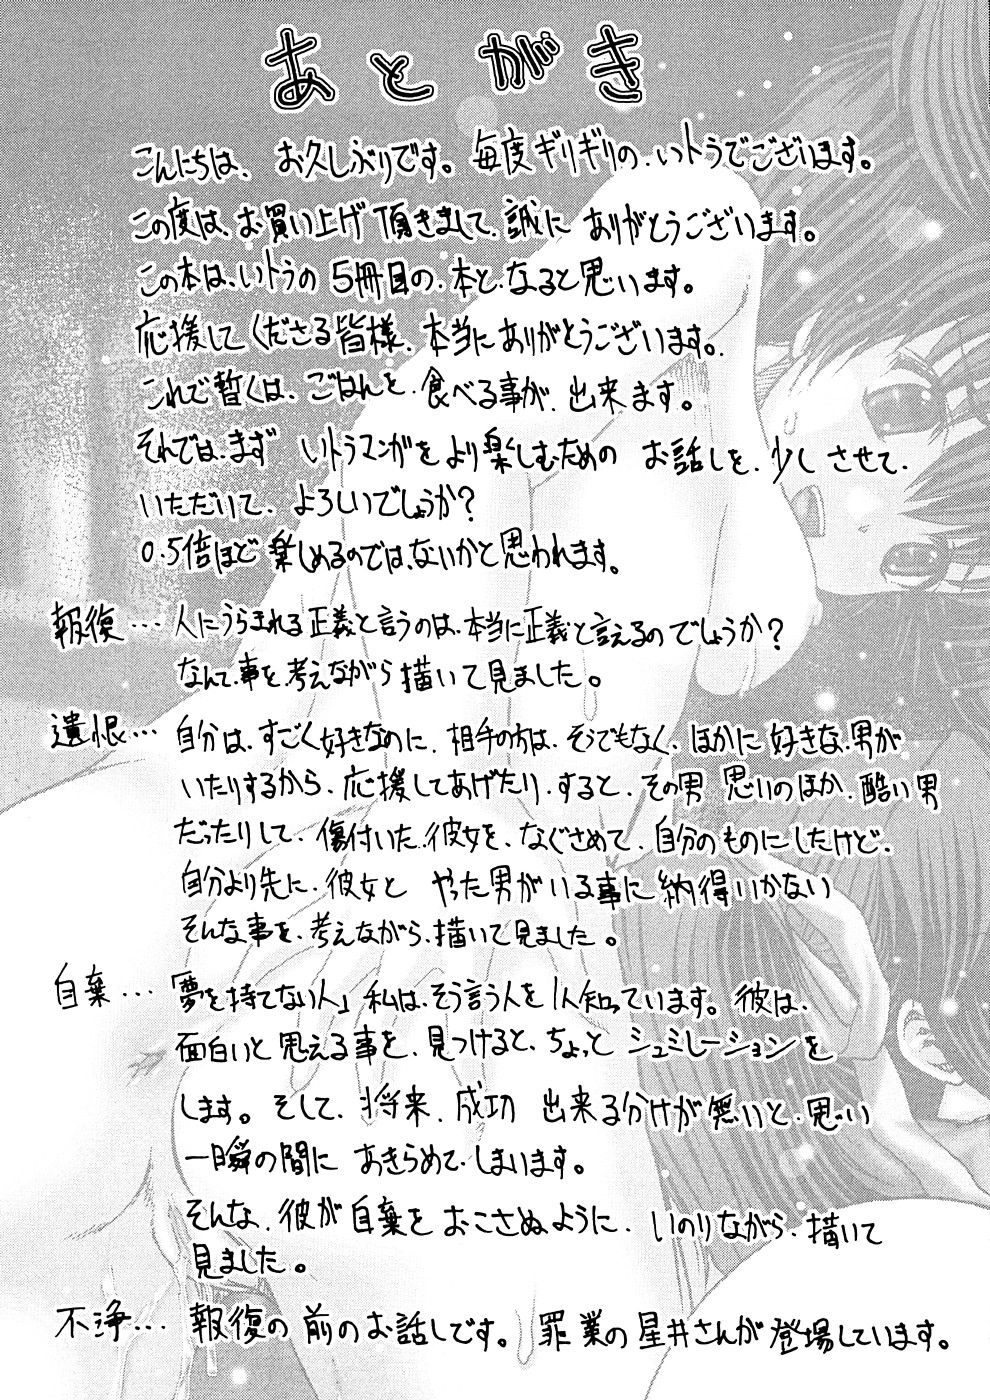 あとがき
こんにちは、お久しぶりです。毎度ギリギリの、いトうでございます。
この度は、お買い上げ頂きまして、誠にありがとうございます。
この本は、いトうの5冊目の、本と、なると思います。
応援してくださる皆様、本当にありがとうございます。
これで暫くは、ごはんを、食べる事が、出来ます。
それでは、まず いトうマンガをより楽しむための お話しを、少しさせて、
いただいて、よろしいでしょうか?
0.5倍ほど楽しめるのでは、ないかと思われます。
報復… 人にうらまれる正義と言うのは、本当に正義と言えるのでしょうか?
なんて、事を、考えながら描いて見ました。
遺恨… 自分は、すごく好きなのに、相手の方は、そうでもなく、ほかに好きな、男が
いたりするから、応援してあげたり、すると、その男 思いのほか、酷い男
だったりして、傷付いた、彼女を、なぐさめて、自分のものにしたけど、
自分より先に、彼女と やった男がいる事に納得いかない
そんな事を、考えながら、描いて見ました。
自棄… 「夢を持てない人」私は、そう言う人を1人知っています。彼は、
面白いと思える事を、見つけると、ちょっとシュミレーションを
します。そして、将来、成功 出来る分けが無いと、思い
一瞬の間に あきらめて、しまいます。
そんな、彼が自棄をおこさぬように、いのりながら、描いて
見ました。
不浄… 報復の前のお話しです。罪業の星井さんが登場しています。